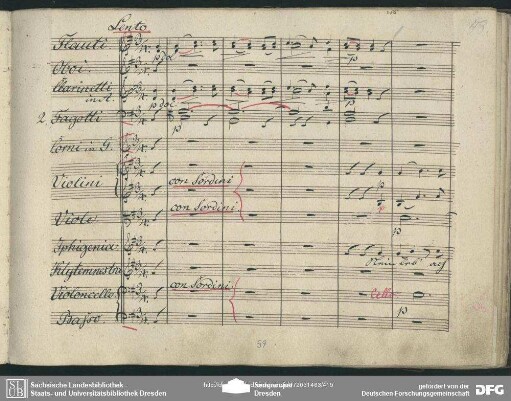 Lento
Flauti
p dol
p
Oboi.
Clarinetti
in A.
p dol
2. Fagotti
p
Corni in G.
Violini
con Sordini
con Sordini
p
Viole
p
Iphigenia
Klytemnestra
Violoncello
con Sordini
Cello
p
Basso
59
Sächsische Landesbibliothek
Staats- und Universitätsbibliothek Dresden
Dresden
gefördert von der
Deutschen Forschungsgemeinschaft
DFG